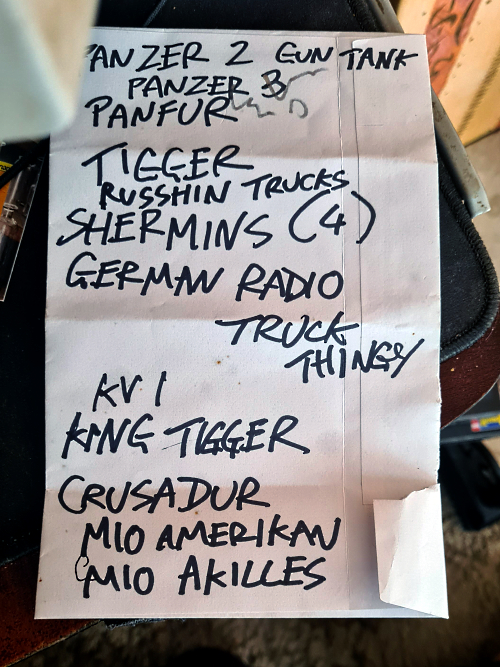 PANZER 2 GUN TANK
PANZER 3
PANFUR
TIGGER
RUSSHIN TRUCKS
SHERMINS (4)
GERMAN RADIO
TRUCK
THINGY
KV 1
KING TIGGER
CRUSADUR
M10 AMERIKAN
M10 AKILLES